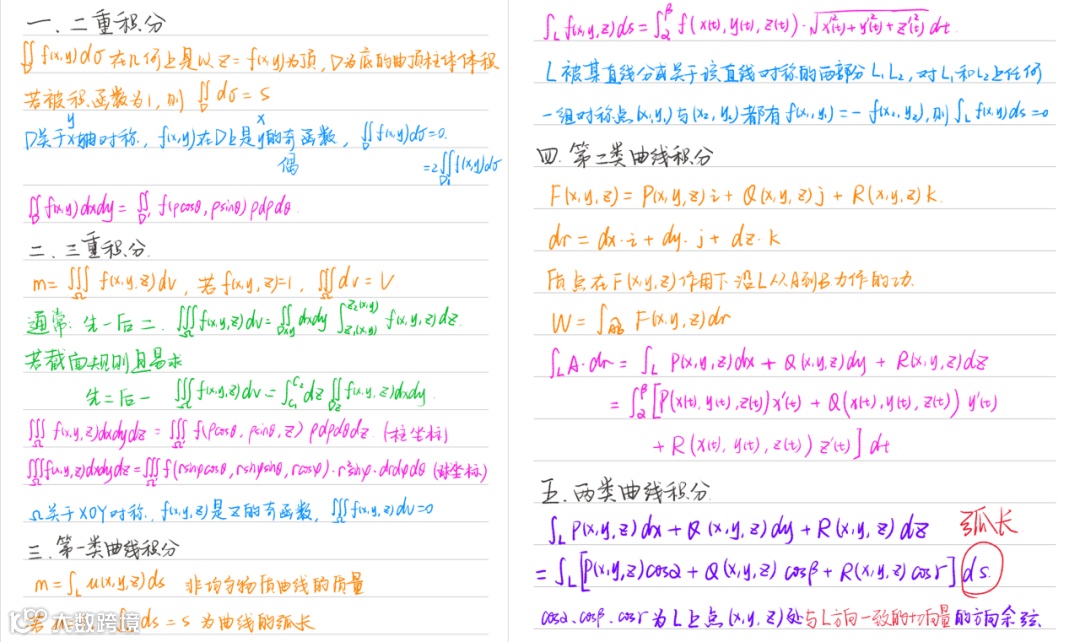 一. 二重积分
∬_D f(x,y)dσ 在几何上是以 z = f(x,y)为顶, D为底的曲顶柱体体积
若被积函数为1, 则 ∬_D dσ = S
y x
D关于x轴对称, f(x,y)在D上是y的奇函数, ∬_D f(x,y)dσ=0.
偶 =2∬_{D₁} f(x,y)dσ
∬_D f(x,y)dxdy = ∬_{D'} f(ρcosθ, ρsinθ) ρdρdθ.
二. 三重积分.
m = ∭_Ω f(x,y,z)dv, 若 f(x,y,z)=1, ∭_Ω dv = V
通常: 先一后二. ∭_Ω f(x,y,z)dv = ∬_{Dxy} dxdy ∫_{z₁(x,y)}^{z₂(x,y)} f(x,y,z)dz.
若截面规则且易求
先二后一 ∭_Ω f(x,y,z)dv = ∫_{C₁}^{C₂} dz ∬_{Dz} f(x,y,z)dxdy.
∭_Ω f(x,y,z)dxdydz = ∭_Ω f(ρcosθ, ρsinθ, z) ρdρdθdz. (柱坐标)
∭_Ω f(x,y,z)dxdydz = ∭_Ω f(rsinφcosθ, rsinφsinθ, rcosφ)·r²sinφ·drdφdθ (球坐标)
Ω关于XOY对称, f(x,y,z)是z的奇函数, ∭_Ω f(x,y,z)dv=0
三. 第一类曲线积分
m = ∫_L u(x,y,z)ds 非均匀物质曲线的质量
若 ∫_L ds = s 为曲线的弧长
大数跨境
∫_L f(x,y,z)ds = ∫_α^β f(x(t), y(t), z(t))·√(x'²(t)+y'²(t)+z'²(t)) dt.
L被某直线分成关于该直线对称的两部分L₁L₂, 对L₁和L₂上任何
一组对称点(x₁,y₁)与(x₂,y₂)都有f(x₁,y₁)=-f(x₂,y₂), 则∫_L f(x,y)ds=0
四. 第二类曲线积分
F(x,y,z) = P(x,y,z)i + Q(x,y,z)j + R(x,y,z)k.
dr = dx·i + dy·j + dz·k
质点在F(x,y,z)作用下沿L从A到B力作的功.
W = ∫_{AB} F(x,y,z)dr
∫_L A·dr = ∫_L P(x,y,z)dx + Q(x,y,z)dy + R(x,y,z)dz
= ∫_α^β [P(x(t), y(t), z(t))x'(t) + Q(x(t), y(t), z(t)) y'(t)
+ R(x(t), y(t), z(t)) z'(t)] dt
五. 两类曲线积分.
∫_L P(x,y,z)dx + Q(x,y,z)dy + R(x,y,z)dz 弧长
= ∫_L [P(x,y,z)cosα + Q(x,y,z)cosβ + R(x,y,z)cosr] ds.
cosα. cosβ. cosr 为L上点(x,y,z)处与L方向一致的切向量的方向余弦.